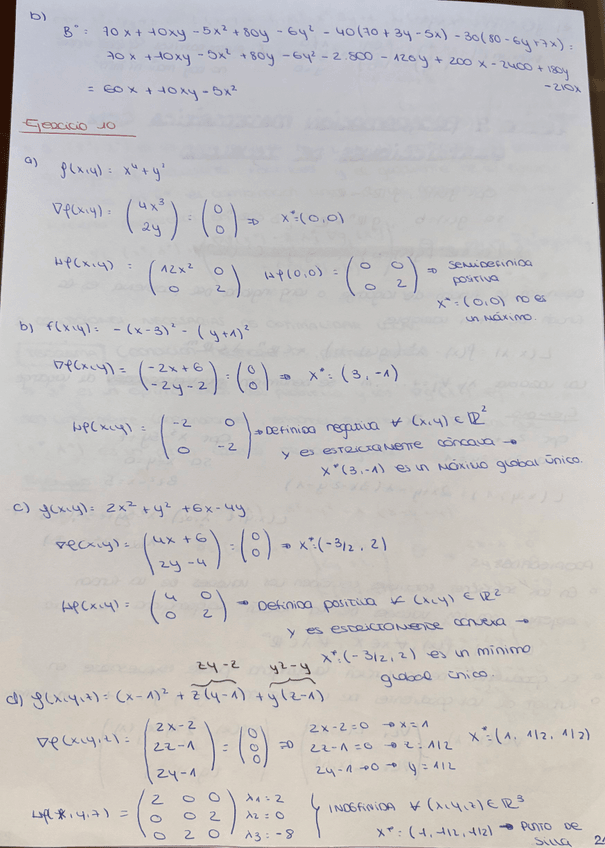 b)
B" = 70x + 10xy - 5x² + 80y - 6y² - 40(70 + 3y - 5x) - 30(80 - 6y + 7x) =
70x + 10xy - 5x² + 80y - 6y² - 2.800 - 120y + 200x - 2400 + 180y
- 210x
= 60x + 10xy - 5x²
Ejercicio 10
a) f(x,y) = x⁴ + y²
∇f(x,y) = (4x³ 2y) = (0 0) ⇒ x* = (0,0)
Hf(x,y) = (12x² 0 0 2) Hf(0,0) = (0 0 0 2) ⇒ SEMIDEFINIDA
POSITIVA
x* = (0,0) no es
un MÁXIMO.
b) f(x,y) = -(x-3)² - (y+1)²
∇f(x,y) = (-2x+6 -2y-2) = (0 0) ⇒ x* = (3, -1)
Hf(x,y) = (-2 0 0 -2) → Definida negativa ∀ (x,y) ∈ ℝ²
y es ESTRICTAMENTE CÓNCAVA →
x*(3,-1) es un MÁXIMO global único.
c) f(x,y) = 2x² + y² + 6x - 4y
∇f(x,y) = (4x + 6 2y - 4) = (0 0) ⇒ x* = (-3/2, 2)
Hf(x,y) = (4 0 0 2) → Definida positiva ∀ (x,y) ∈ ℝ²
y es ESTRICTAMENTE CONVEXA →
x* = (-3/2, 2) es un mínimo
global único.
zy - z y² - y
d) f(x,y,z) = (x-1)² + z(y-1) + y(z-1)
∇f(x,y,z) = (2x-2 2z-1 2y-1) = (0 0 0) ⇒
2x-2=0 → x=1 x* = (1, 1/2, 1/2)
2z-1=0 → z=1/2
2y-1→0 → y=1/2
Hf(x,y,z) = (2 0 0 0 0 2 0 2 0) λ1=2 λ2=0 λ3=-8
INDEFINIDA ∀ (x,y,z) ∈ ℝ³
x* = (1, 1/2, 1/2) → PUNTO DE
SILLA